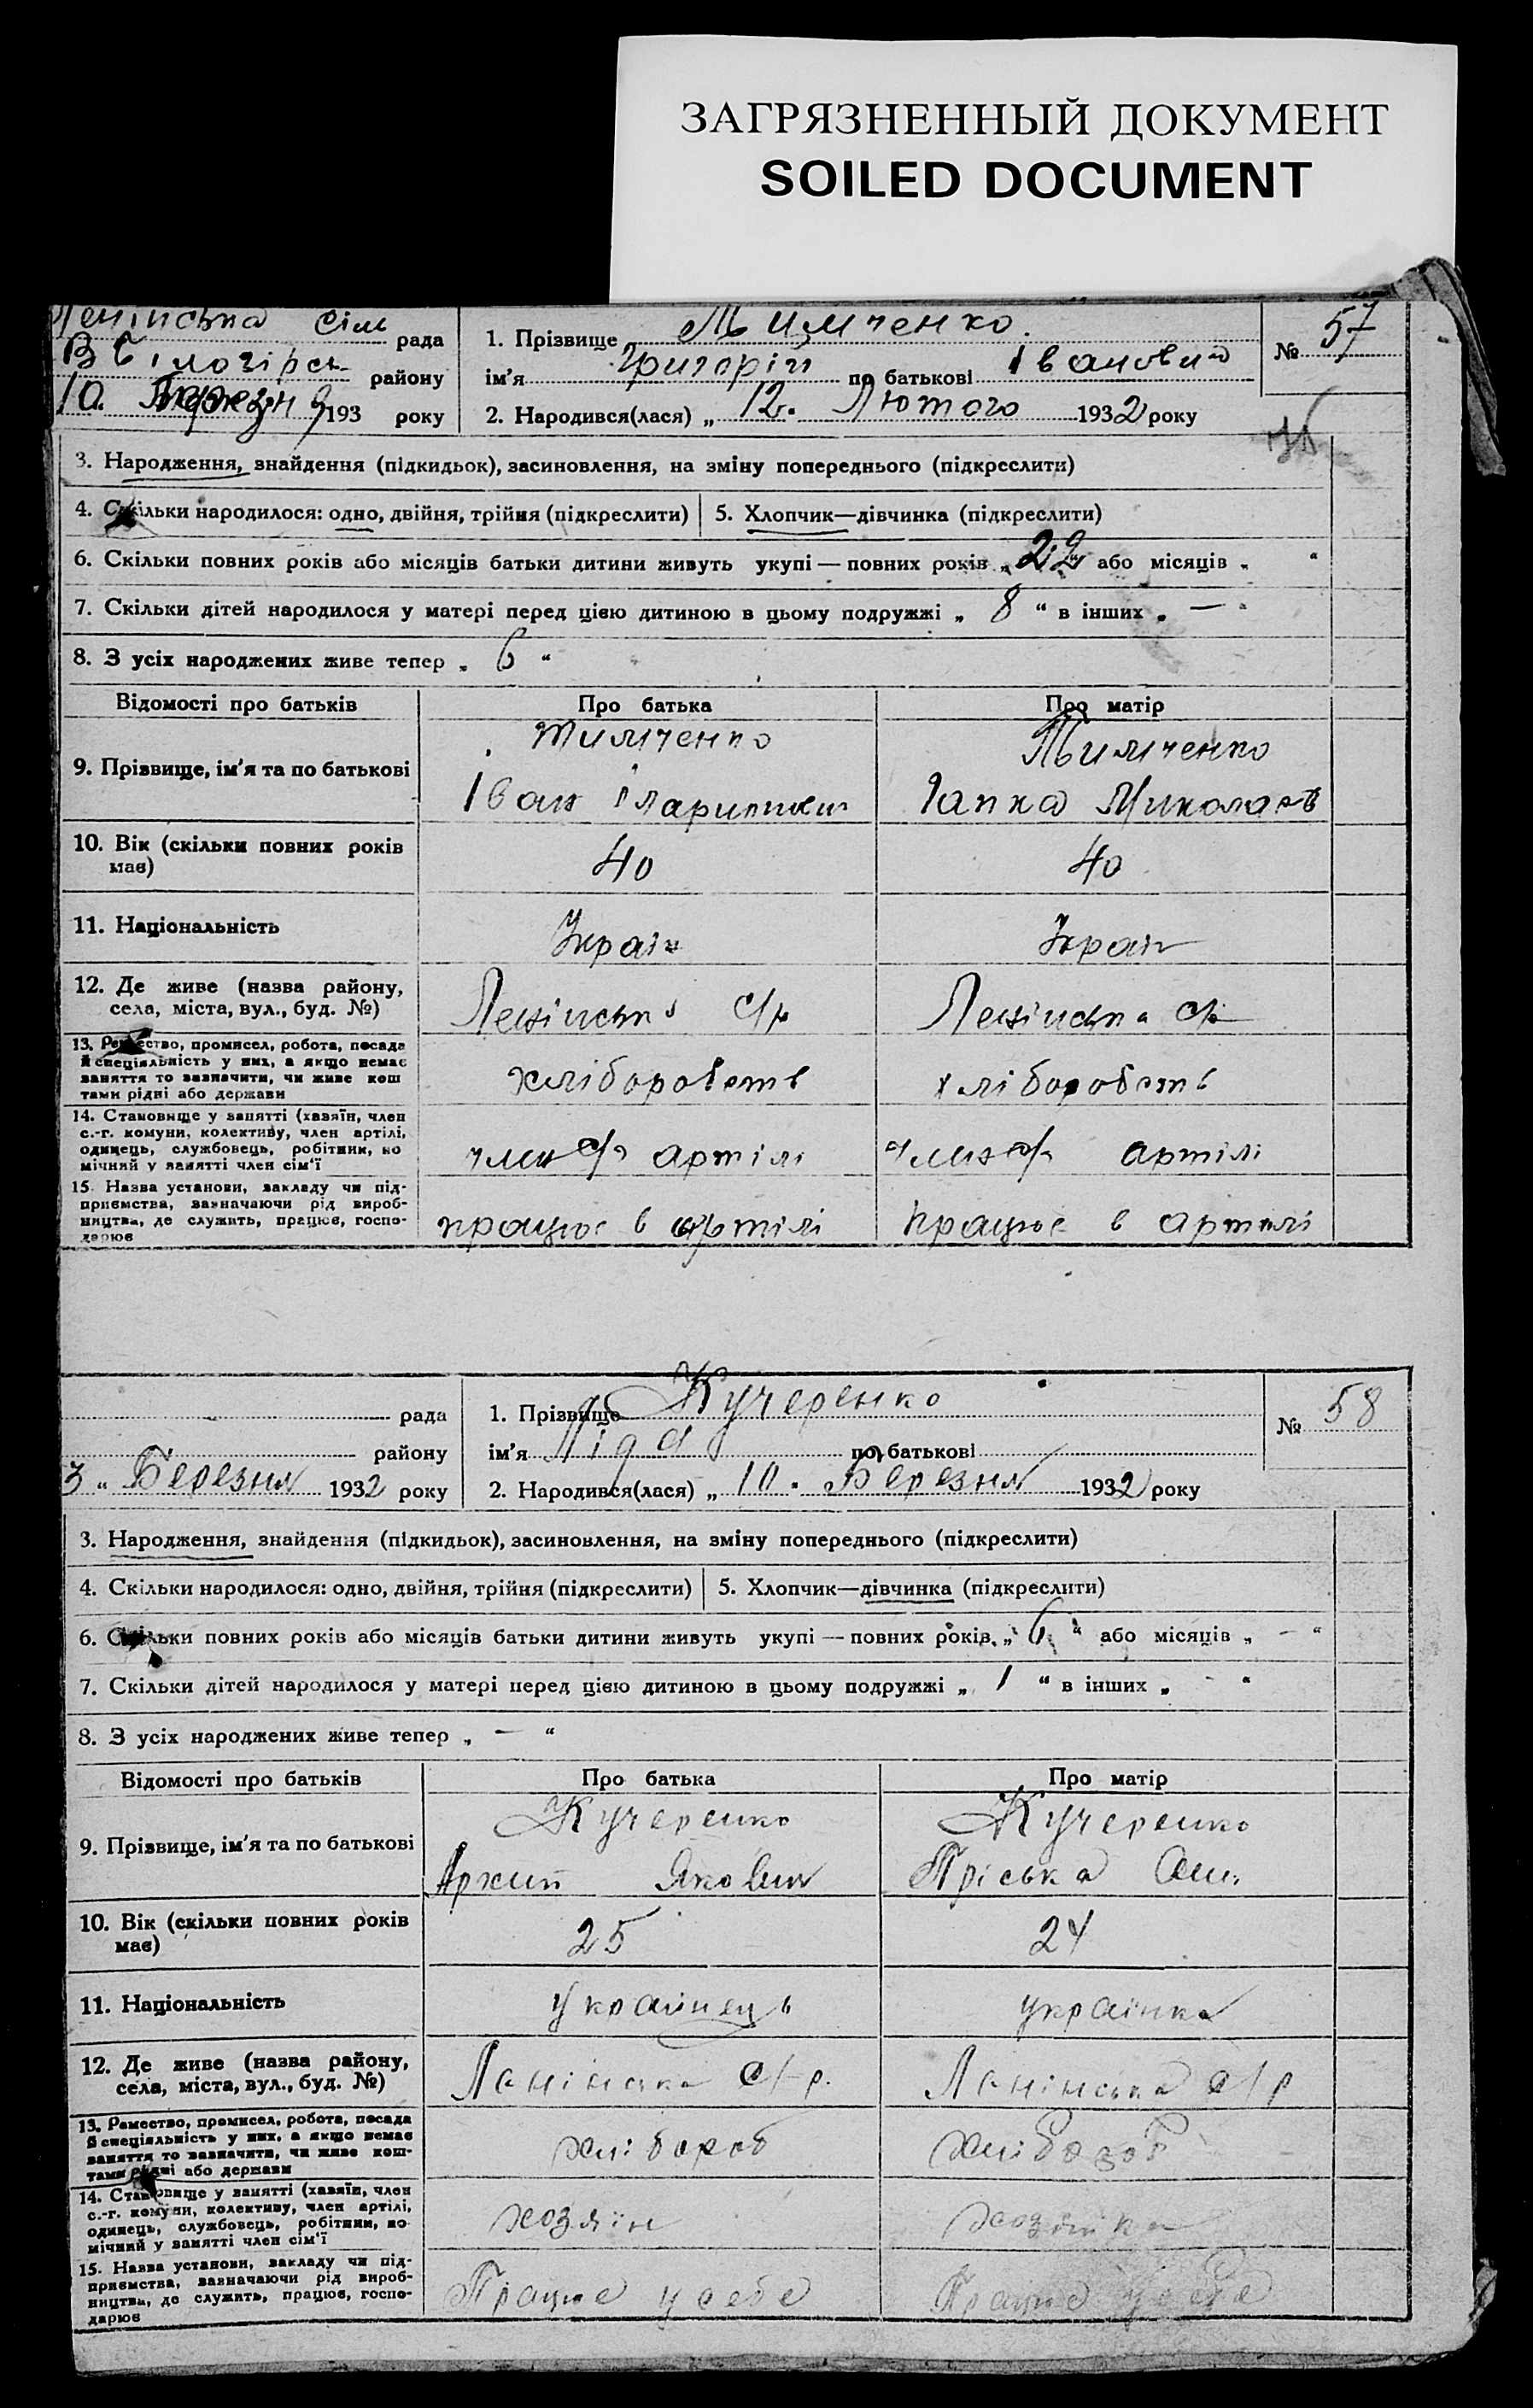 ЗАГРЯЗНЕННЫЙ ДОКУМЕНТ
SOILED DOCUMENT
Ленінська сіль рада
В Білогірськ району
10. Березня 193 року
1. Прізвище Тимченко.
ім'я Григорій по батькові Іванович
2. Народився(лася) „ 12. Лютого 1932 року
№ 57
3. Народження, знайдення (підкидьок), засиновлення, на зміну попереднього (підкреслити)
4. Скільки народилося: одно, двійня, трійня (підкреслити) 5. Хлопчик—дівчинка (підкреслити)
6. Скільки повних років або місяців батьки дитини живуть укупі — повних років „ 22 або місяців „ “
7. Скільки дітей народилося у матері перед цією дитиною в цьому подружжі „ 8 “ в інших „ — “
8. З усіх народжених живе тепер „ 6 “
Відомості про батьків Про батька Про матір
9. Прізвище, ім'я та по батькові
Тимченко Тимченко
Іван Гапка Миколаєв
10. Вік (скільки повних років має) 40 40
11. Національність Україн Україн
12. Де живе (назва району, села, міста, вул., буд. №) Ленінська с/р Ленінська с/р
13. Ремество, промисел, робота, посада
й спеціяльність у них, а якщо немає
заняття то зазначити, чи живе кош
тами рідні або держави
хліборобств хліборобств
14. Становище у занятті (хазяїн, член
с.-г. комуни, колективу, член артілі,
одинець, службовець, робітник, по
мічний у занятті член сім'ї
член с/г артілі член с/г артілі
15. Назва установи, закладу чи під-
приємства, зазначаючи рід вироб-
ництва, де служить, працює, госпо-
дарює
працює в артілі працює в артілі
рада
району
3 “ Березня 1932 року
1. Прізвище Кучеренко
ім'я Ліда по батькові
2. Народився(лася) „ 10. Березня 1932 року
№ 58
3. Народження, знайдення (підкидьок), засиновлення, на зміну попереднього (підкреслити)
4. Скільки народилося: одно, двійня, трійня (підкреслити) 5. Хлопчик—дівчинка (підкреслити)
6. Скільки повних років або місяців батьки дитини живуть укупі — повних років „ 6 “ або місяців „ — “
7. Скільки дітей народилося у матері перед цією дитиною в цьому подружжі „ 1 “ в інших „ - “
8. З усіх народжених живе тепер „ — “
Відомості про батьків Про батька Про матір
9. Прізвище, ім'я та по батькові
Кучеренко Кучеренко
Архип Якович Пріська
10. Вік (скільки повних років має) 25 24
11. Національність українець українка
12. Де живе (назва району, села, міста, вул., буд. №) Ленінська с/р. Ленінська с/р
13. Ремество, промисел, робота, посада
й спеціяльність у них, а якщо немає
заняття то зазначити, чи живе кош-
тами рідні або держави
хлібороб хлібороб
14. Становище у занятті (хазяїн, член
с.-г. комуни, колективу, член артілі,
одинець, службовець, робітник, по
мічний у занятті член сім'ї
хозяїн хозяйка
15. Назва установи, закладу чи під-
приємства, зазначаючи рід вироб-
ництва, де служить, працює, госпо-
дарює
Працює у себе Працює у себе